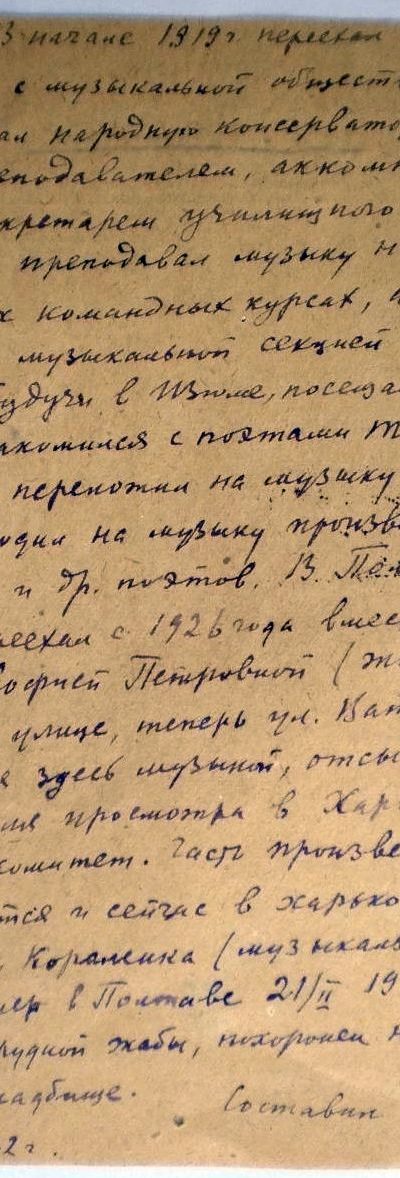 В начале 1919 г. переехал
с музыкальной общест
ал народную консервато
еподавателем, аккомп
кретарем училищного
преподавал музыку н
х командных курсах,
музыкальной секцией
Будучи в Изюме, посеща
акомился с поэтами
переложил на музыку
одил на музыку произв
и др. поэтов. В Пол
реехал с 1926 года вмес
Софией Петровной (
улице, теперь ул. Ват
я здесь музыкой, отсы
ля просмотра в Хар
комитет. Часть произве
тся и сейчас в харько
Короленка (музыкаль
мер в Полтаве 21/II 19
рудной жабы, похоронен н
ладбище. Составил
2 г.